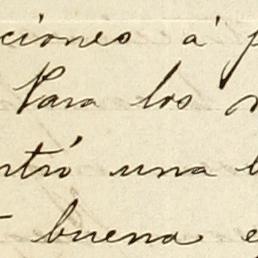 ciones á p
Para los
ntró una
buena e